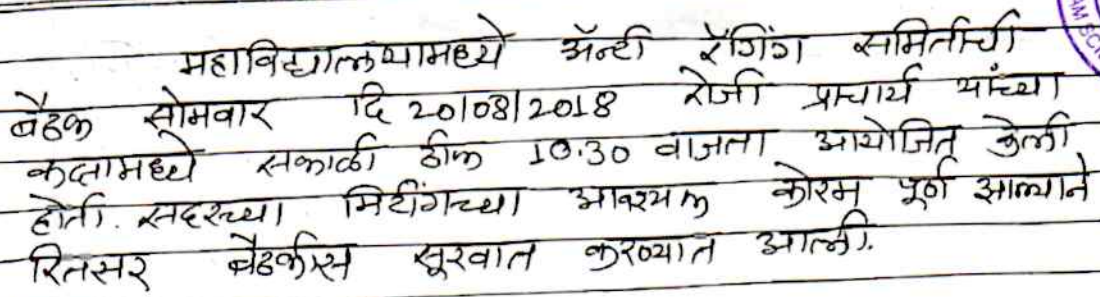 महाविद्यालयामध्ये अॅन्टी रॅगिंग समितीची
बैठक सोमवार दि 20/08/2018 रोजी प्राचार्य यांच्या
कक्षामध्ये सकाळी ठीक 10.30 वाजता आयोजित केली
होती. सदरच्या मिटींगच्या आवश्यक कोरम पूर्ण झाल्याने
रितसर बैठकीस सूरवात करण्यात आली.